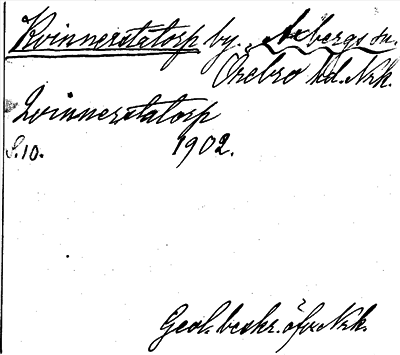 Kvinnerstatorp by, Axbergs sn.
Örebro hd. Nrk.
Qvinnerstatorp
S. 10. 1902.
Geol. beskr. öfver Nrk.